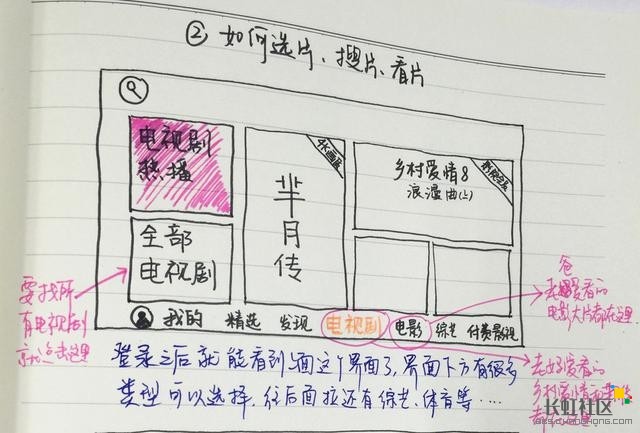 ② 如何选片、搜片、看片
电视剧
热播
全部
电视剧
芈月传
4K画质
乡村爱情8
浪漫曲(上)
我的 精选 发现 电视剧 电影 综艺 付费影视
要找所
有电视剧
就点击这里
爸
爱看的
电影大片都在这里
爱看的
乡村爱情
登录之后就能看到上面这个界面了,界面下方有很多
类型可以选择,往后面拉还有综艺、体育等……
长虹社区